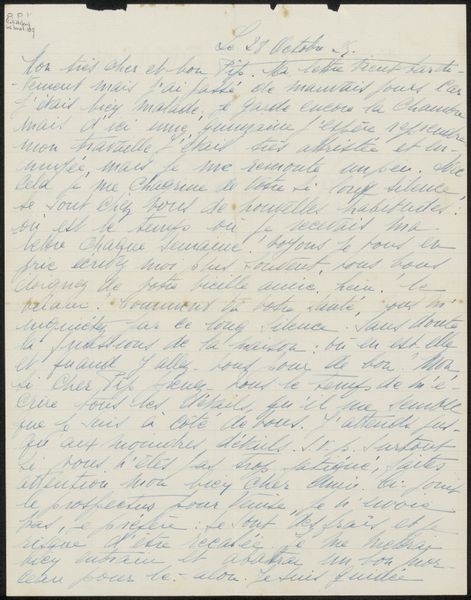 Le 28 Octobre
Mon très cher et bon Pip. Ma lettre vient tardi-
vement mais j'ai passé de mauvais jours car
j'étais bien malade, je garde encore la Chambre
mais d'ici une quinzaine j'espère reprendre
mon travail. J'étais très attristée et en-
nuyée, mais je me remonte un peu. Avec
cela je me chagrine de votre si long silence,
ce sont chez vous de nouvelles habitudes:
où est le temps où je recevais ma
lettre chaque semaine! Voyons je vous en
prie écrivez moi plus souvent, vous vous
éloignez de votre vieille amie, Pip. Je
réclame. Comment va votre santé, vous m'
inquiétez par ce long silence. Sans doute
la questions de la maison: où en est elle
et quand y allez vous pour de bon? Mon
si cher Pip prenez vous le temps de m'é-
crire tous les détails, qu'il me semble
que je suis à côté de vous. J'attends jus-
qu'aux moindres détails. S.v.p. surtout
si vous n'êtes pas trop fatigué, faites
attention mon bien cher Ami. Ci joint
le prospectus pour Venise, je n'envoie
pas, je préfère: ce sont des frais et je
risque d'être recalée, je me mettrai
bien en train et
pour le Salon. Je suis